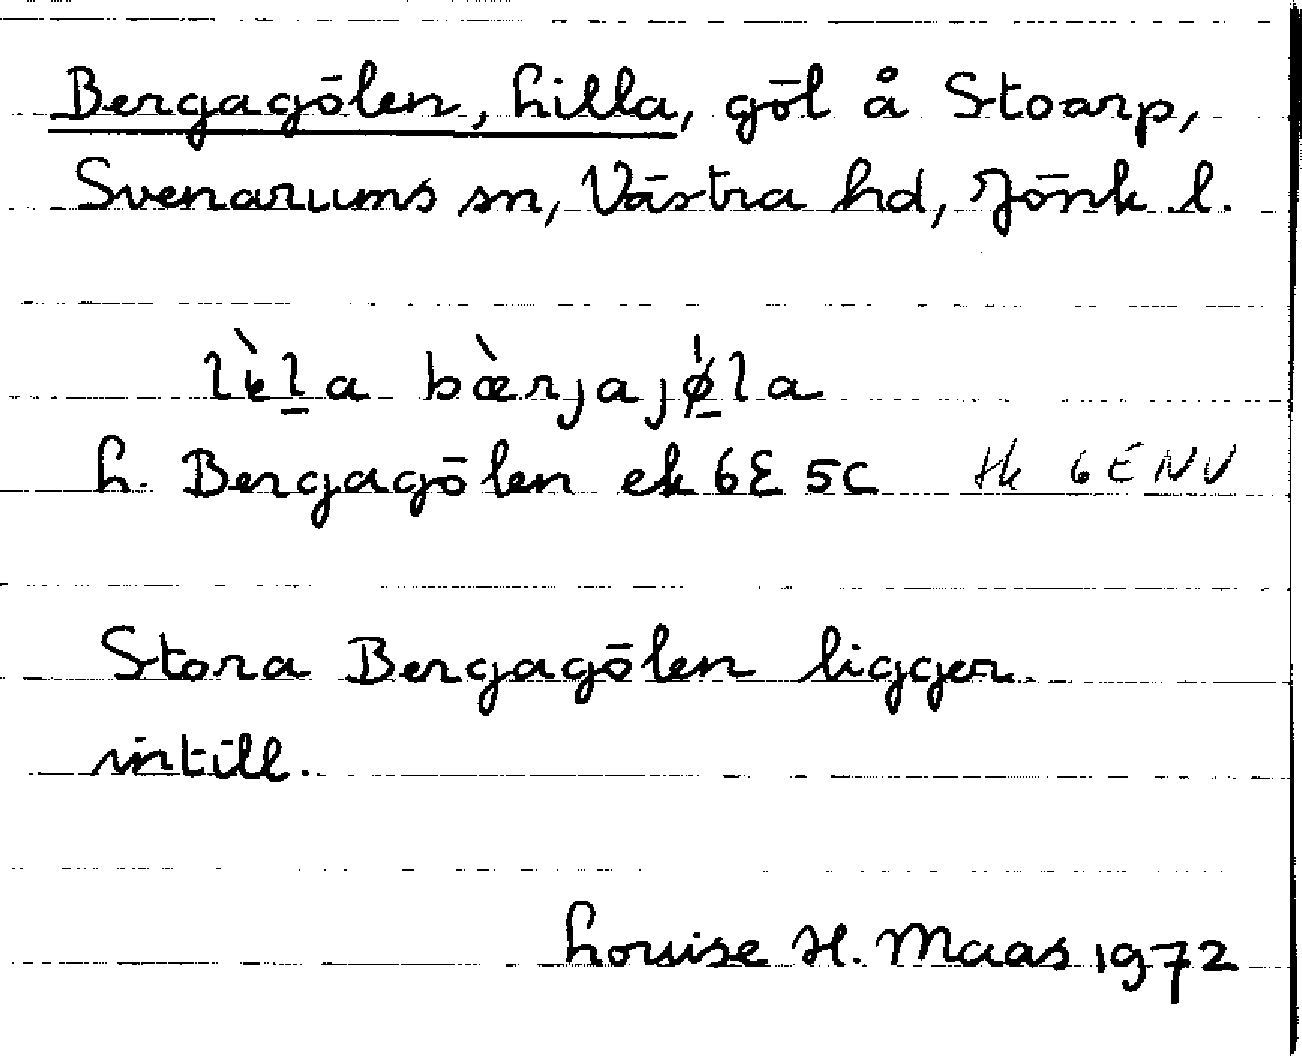 Bergagölen, Lilla, göl å Stoarp,
Svenarums sn, Västra hd, Jönk l.
lìla bæ̀rjajø̍la
L. Bergagölen ek 6E 5c Hk 6E NV
Stora Bergagölen ligger
intill.
Louise H. Maas 1972